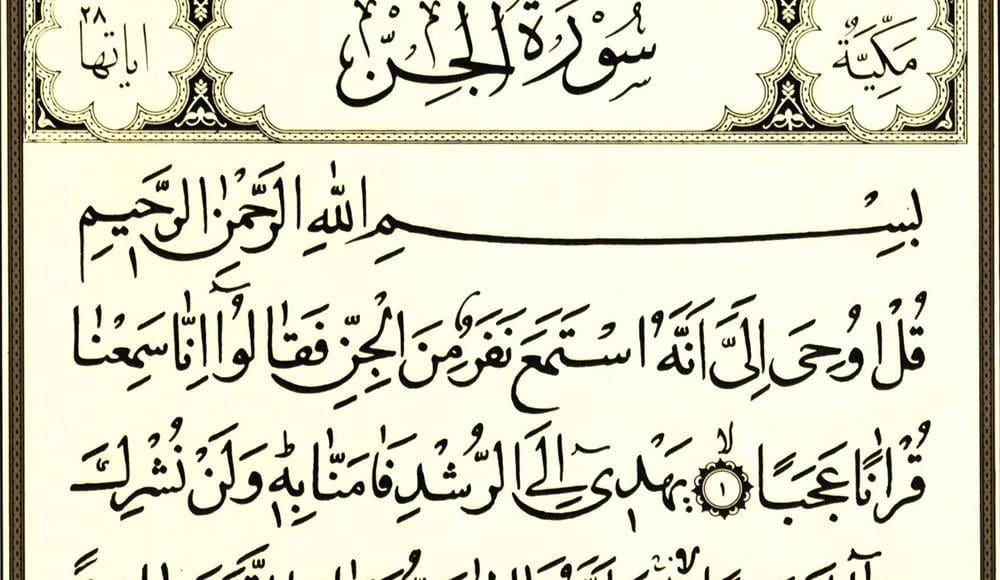 مَكِّيَّةٌ سُوْرَةُ الْجِنِّ اٰيَاتُهَا ٢٨
بِسْمِ اللّٰهِ الرَّحْمٰنِ الرَّحِيْمِ
قُلْ اُوْحِىَ اِلَىَّ اَنَّهُ اسْتَمَعَ نَفَرٌ مِّنَ الْجِنِّ فَقَالُوْٓا اِنَّا سَمِعْنَا
قُرْاٰنًا عَجَبًا ۙ‏﴿١﴾ يَّهْدِىْٓ اِلَى الرُّشْدِ فَاٰمَنَّا بِهٖ ؕ وَلَنْ نُّشْرِكَ